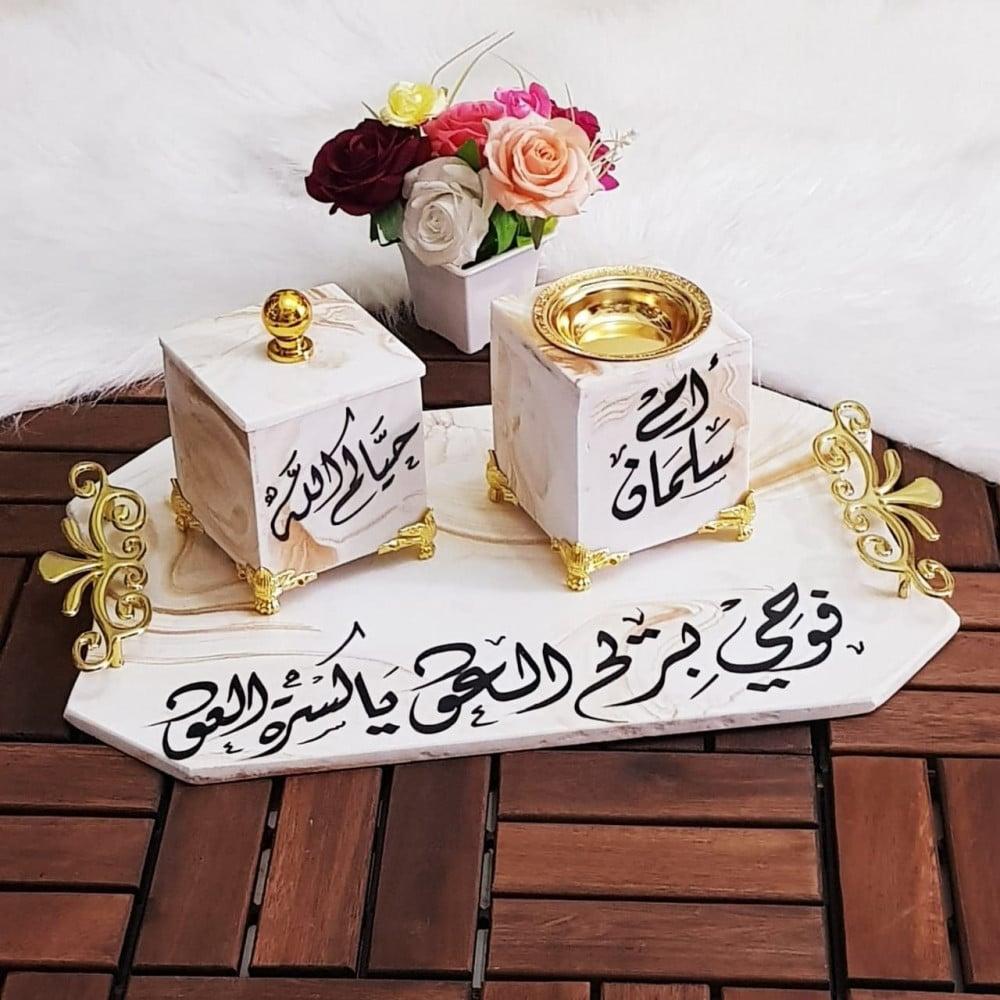 حيَّالم اللَّه
أم
سلمان
فوحي بريح العشق يا كسرة العود